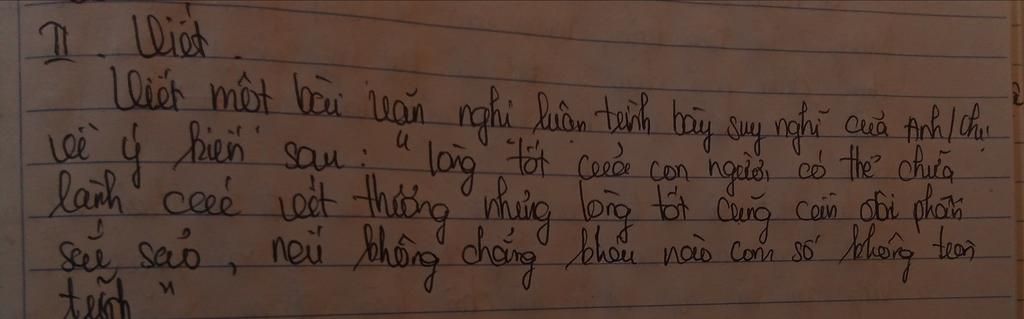 II. Viết.
Viết một bài văn nghị luận trình bày suy nghĩ của Anh/chị
về ý kiến sau: "lòng tốt của con người có thể chữa
lành các vết thương nhưng lòng tốt cũng cần đôi phần
sắc sảo, nếu không chẳng khác nào con số không tròn
trĩnh"